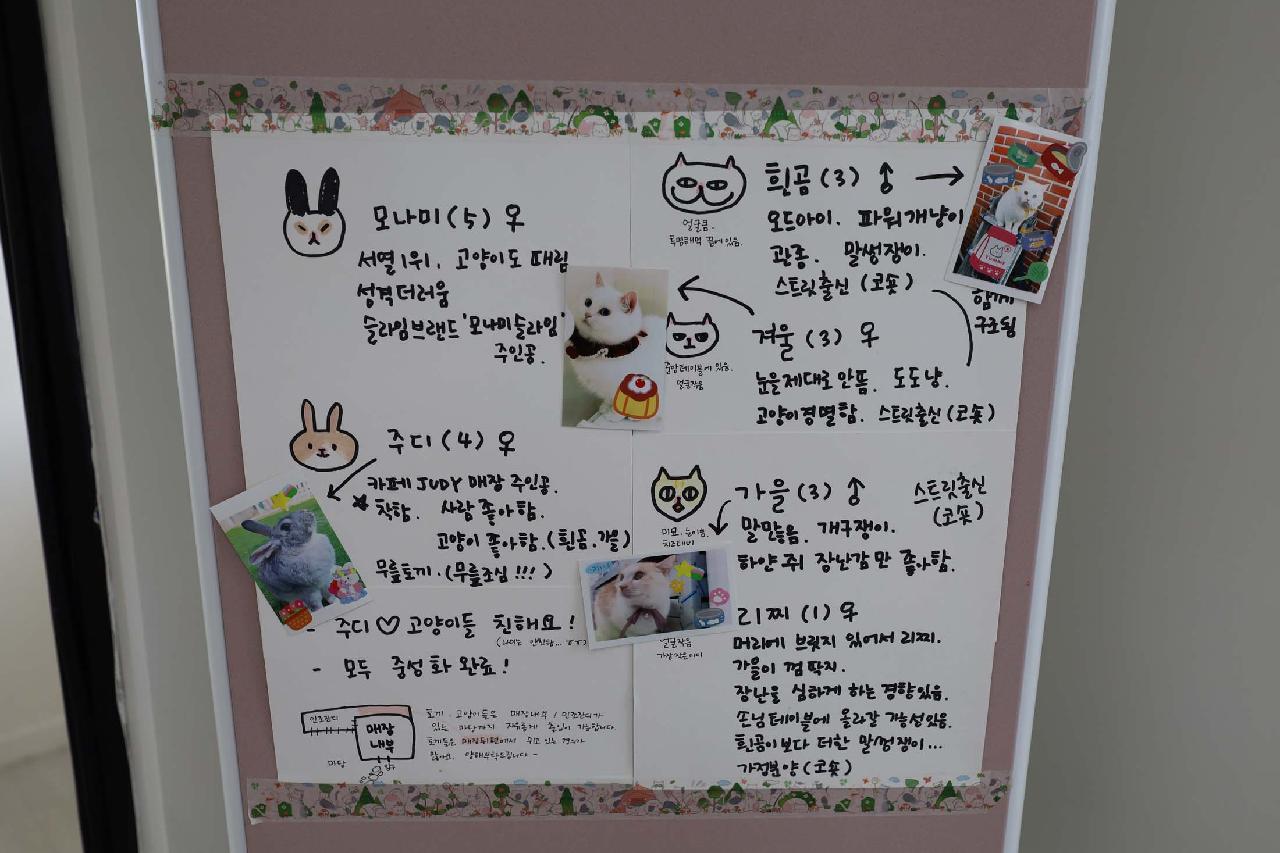 모나미 (5) ♀
서열 1위. 고양이도 때림
성격더러움
슬라임브랜드 '모나미슬라임'
주인공.
주디 (4) ♀
카페 JUDY 매장 주인공.
착함. 사람 좋아함.
고양이 좋아함. (흰곰, 가을)
무릎토끼. (무릎조심 !!!)
- 주디 ♡ 고양이들 친해요!
- 모두 중성화 완료!
인조잔디
매장
내부
마당
토끼, 고양이들은 매장내부 / 인조잔디가
있는 마당까지 자유롭게 출입이 가능합니다.
토끼들은 매장뒤편에서 쉬고 있는 경우가
많아요. 양해부탁드립니다~
흰곰 (3) ♂ →
얼굴큼.
오드아이. 파워개냥이
관종. 말썽쟁이.
스트릿출신 (코숏)
함께
구조됨
겨울 (3) ♀
중앙테이블에 있음.
얼굴작음
눈을 제대로 안뜸. 도도냥.
고양이경멸함. 스트릿출신 (코숏)
가을 (3) ♂
스트릿출신
(코숏)
말많음. 개구쟁이.
하얀 쥐 장난감만 좋아함.
리찌 (1) ♀
얼굴작음
머리에 브릿지 있어서 리찌.
가을이 껌딱지.
장난을 심하게 하는 경향있음.
손님테이블에 올라갈 가능성있음.
흰곰이보다 더한 말썽쟁이...
가정분양 (코숏)